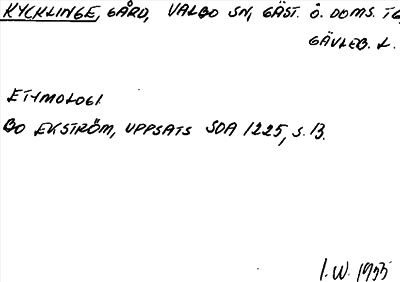 KYCKLINGE, GÅRD, VALBO SN, GÄST. Ö. DOMS. TG,
GÄVLEB. L.
ETYMOLOGI
BO EKSTRÖM, UPPSATS SOA 1225, S. 13.
I.W. 1955